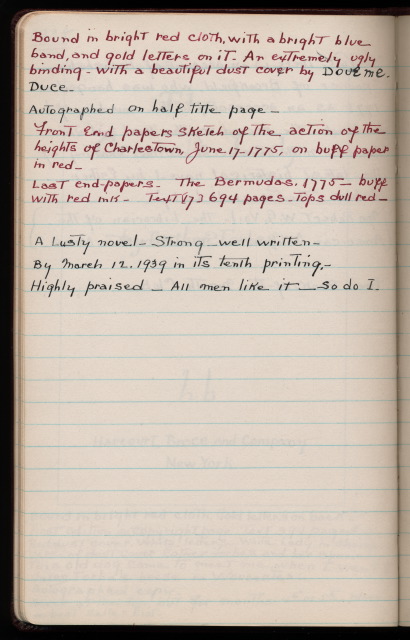 Bound in bright red cloth, with a bright blue
band, and gold letters on it. An extremely ugly
binding - with a beautiful dust cover by
Duce.
Autographed on half title page -
Front End papers sketch of the action of the
heights of Charlestown, June 17-1775, on buff paper
in red -
Last end-papers - The Bermudas, 1775 - buff
with red ink - Text (7) 694 pages - Tops dull red -
A Lusty novel - Strong - well written -
By March 12, 1939 in its tenth printing, -
Highly praised - All men like it - so do I.
HARCOURT BRACE and Company
New York